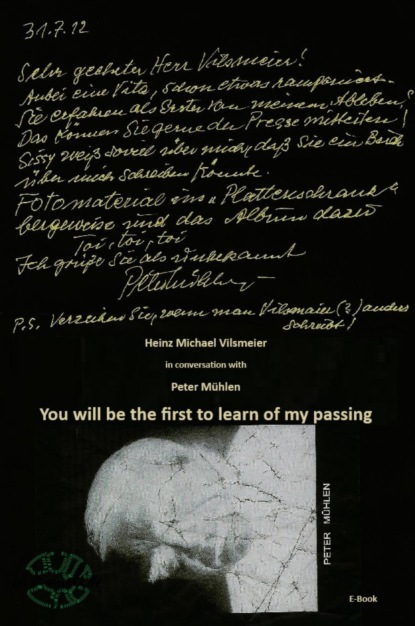 31.7.12
Sehr geehrter Herr Vilsmeier!
Anbei eine Vita, schon etwas ramponiert.
Sie erfahren als Erster von meinem Ableben,
Das können Sie gerne der Presse mitteilen!
Sissy weiß soviel über mich, daß Sie ein Buch
über mich schreiben könnte.
Fotomaterial im "Plattenschrank"
bergeweise und das Album dazu
Toi, toi, toi
Ich grüße Sie als unbekannt
P.S. Verzeihen Sie, wenn man Vilsmaier (?) anders
schreibt!
Heinz Michael Vilsmeier
in conversation with
Peter Mühlen
You will be the first to learn of my passing
PETER MÜHLEN
E-Book